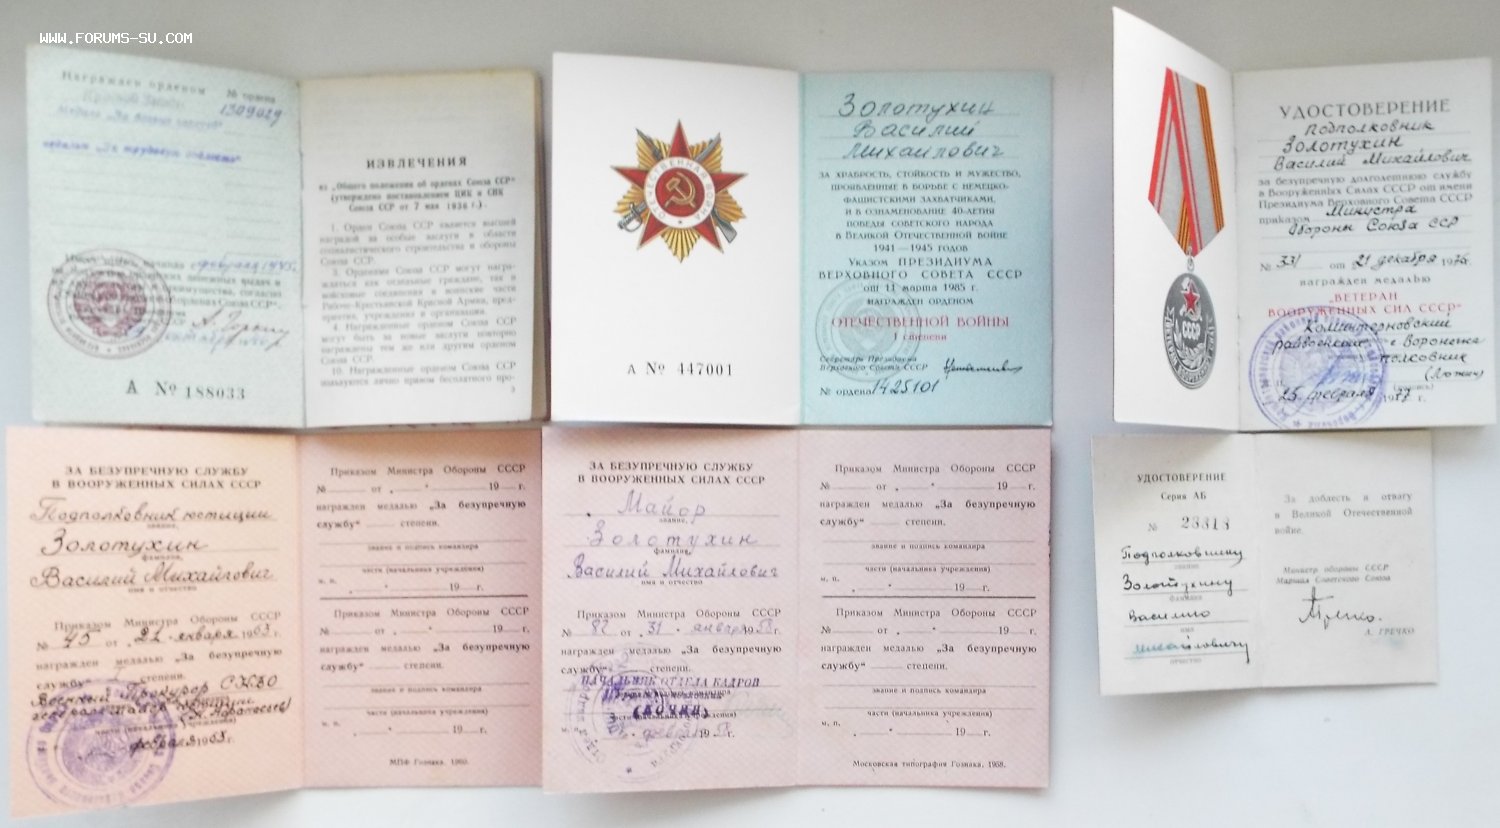 WWW.FORUMS-SU.COM
Награжден орденом № ордена
Красной Звезды 1309029
медаль „За боевые заслуги“
медалью „За трудовую доблесть“
февраля 1945
А № 188033
ИЗВЛЕЧЕНИЯ
из „Общего положения об орденах Союза ССР“
(утверждено постановлением ЦИК и СНК
Союза ССР от 7 мая 1936 г.)
1. Орден Союза ССР является высшей
наградой за особые заслуги в области
социалистического строительства и обороны
Союза ССР.
3. Орденами Союза ССР могут награ-
ждаться как отдельные граждане, так и
войсковые соединения и воинские части
Рабоче-Крестьянской Красной Армии, пред-
приятия, учреждения и организации.
4. Награжденные орденом Союза ССР
могут быть за новые заслуги повторно
награждены тем же или другим орденом
Союза ССР.
10. Награжденные орденом Союза ССР
пользуются лично правом бесплатного про-
3
ОТЕЧЕСТВЕННАЯ ВОЙНА
А № 447001
Золотухин
Василий
Михайлович
ЗА ХРАБРОСТЬ, СТОЙКОСТЬ И МУЖЕСТВО,
ПРОЯВЛЕННЫЕ В БОРЬБЕ С НЕМЕЦКО-
ФАШИСТСКИМИ ЗАХВАТЧИКАМИ,
И В ОЗНАМЕНОВАНИЕ 40-ЛЕТИЯ
ПОБЕДЫ СОВЕТСКОГО НАРОДА
В ВЕЛИКОЙ ОТЕЧЕСТВЕННОЙ ВОЙНЕ
1941—1945 ГОДОВ
УКАЗОМ ПРЕЗИДИУМА
ВЕРХОВНОГО СОВЕТА СССР
от 11 марта 1985 г.
НАГРАЖДЕН ОРДЕНОМ
ОТЕЧЕСТВЕННОЙ ВОЙНЫ
I степени
Секретарь Президиума
Верховного Совета СССР
№ ордена 1425101
СССР
УДОСТОВЕРЕНИЕ
подполковник
Золотухин
Василий Михайлович
за безупречную долголетнюю службу
в Вооруженных Силах СССР от имени
Президиума Верховного Совета СССР
приказом Министра
Обороны Союза ССР
№ 331 от 21 декабря 1976 г.
награжден медалью
"ВЕТЕРАН
ВООРУЖЕННЫХ СИЛ СССР"
Коминтерновский
райвоенком г. Воронежа
полковник
(подпись)
25 февраля 1977 г.
ЗА БЕЗУПРЕЧНУЮ СЛУЖБУ
В ВООРУЖЕННЫХ СИЛАХ СССР
Подполковник юстиции
звание,
Золотухин
фамилия,
Василий Михайлович
имя и отчество
Приказом Министра Обороны СССР
№ 45 от „21“ января 1963 г.
награжден медалью „За безупречную
службу“ I степени.
Военный Прокурор СКВО
генерал-майор юстиции
части (начальника учреждения)
февраля 1963 г.
Приказом Министра Обороны СССР
№ от „ “ 19 г.
награжден медалью „За безупречную
службу“ степени.
звание и подпись командира
части (начальника учреждения)
м. п. „ “ 19 г.
Приказом Министра Обороны СССР
№ от „ “ 19 г.
награжден медалью „За безупречную
службу“ степени.
звание и подпись командира
части (начальника учреждения)
м. п. „ “ 19 г.
МПФ Гознака. 1960.
ЗА БЕЗУПРЕЧНУЮ СЛУЖБУ
В ВООРУЖЕННЫХ СИЛАХ СССР
Майор
звание,
Золотухин
фамилия,
Василий Михайлович
имя и отчество
Приказом Министра Обороны СССР
№ 82 от „31“ января 1958 г.
награжден медалью „За безупречную
службу“ степени.
НАЧАЛЬНИК ОТДЕЛА КАДРОВ
части (начальника учреждения)
Приказом Министра Обороны СССР
№ от „ “ 19 г.
награжден медалью „За безупречную
службу“ степени.
звание и подпись командира
части (начальника учреждения)
м. п. „ “ 19 г.
Приказом Министра Обороны СССР
№ от „ “ 19 г.
награжден медалью „За безупречную
службу“ степени.
звание и подпись командира
части (начальника учреждения)
м. п. „ “ 19 г.
Московская типография Гознака. 1958.
УДОСТОВЕРЕНИЕ
Серия АБ
№ 23313
Подполковнику
звание
Золотухину
фамилия
Василию
имя
Михайловичу
отчество
За доблесть и отвагу
в Великой Отечественной
войне.
Министр обороны СССР
Маршал Советского Союза
А. ГРЕЧКО